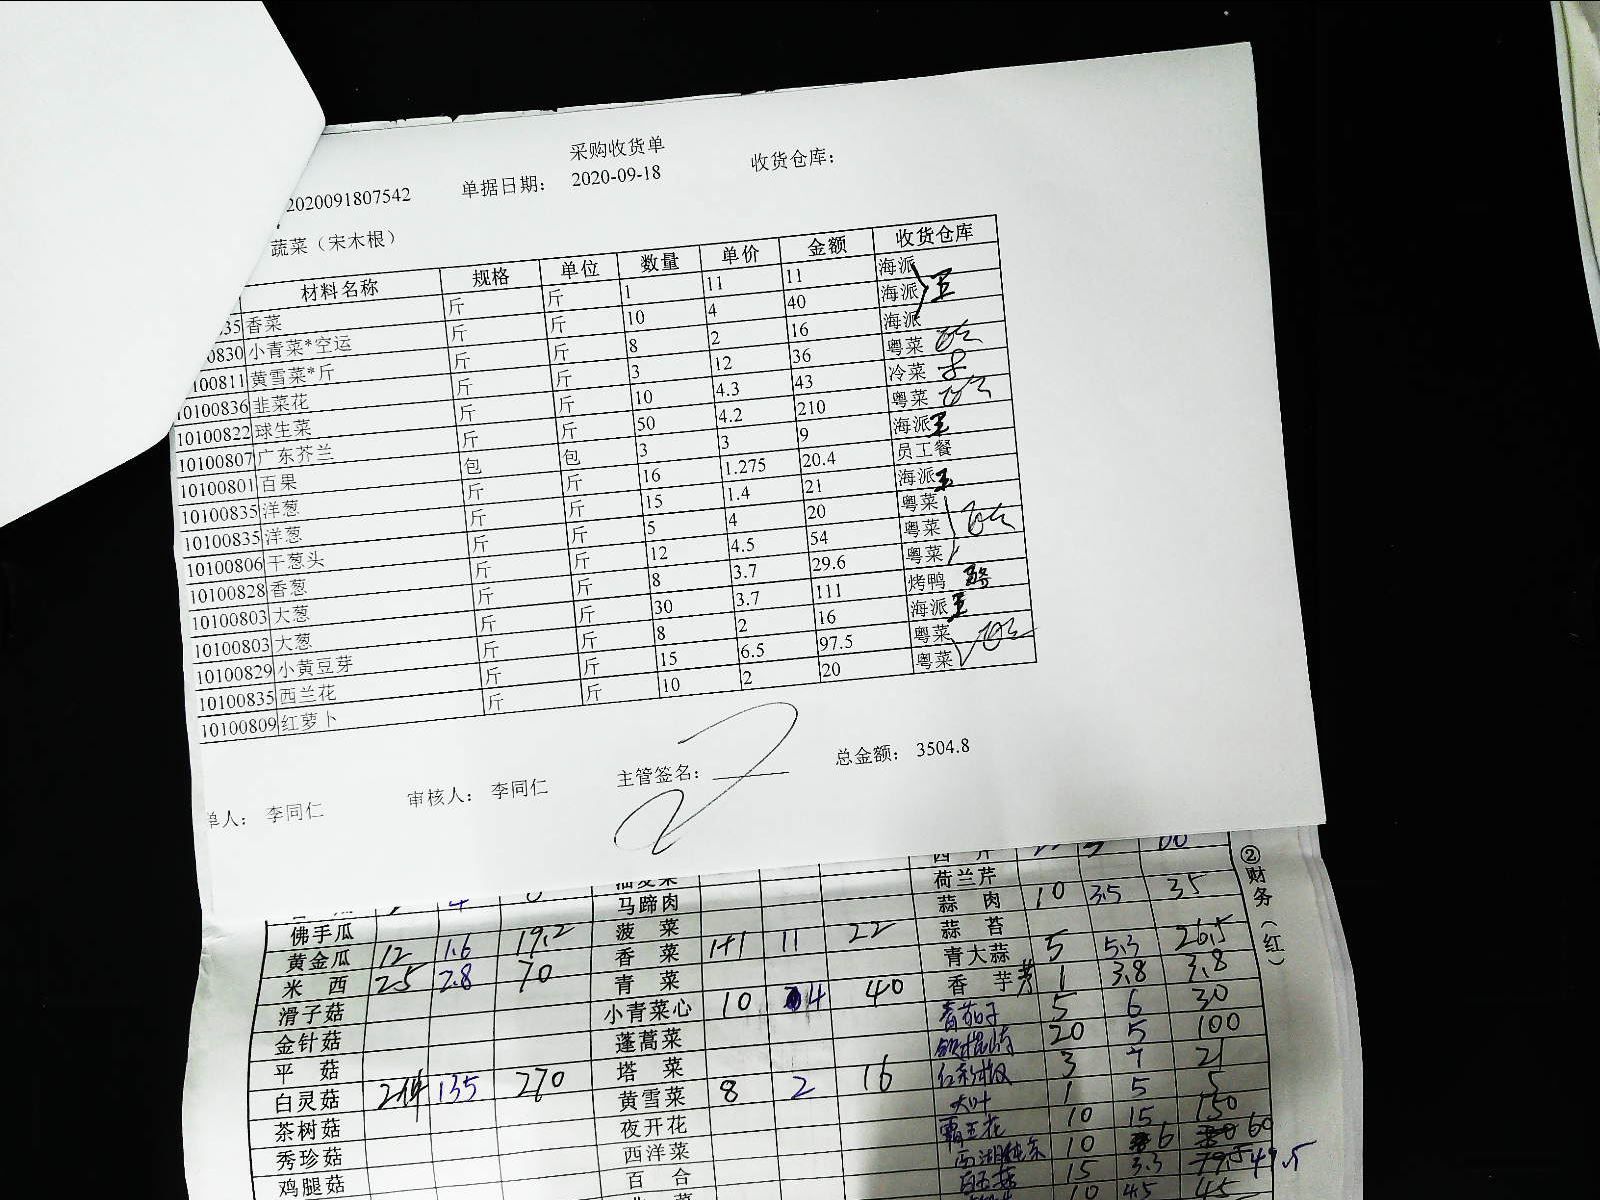 采购收货单
2020091807542 单据日期： 2020-09-18 收货仓库：
蔬菜（宋木根）
材料名称 规格 单位 数量 单价 金额 收货仓库
35 香菜 斤 斤 1 11 11 海派
0830 小青菜*空运 斤 斤 10 4 40 海派
100811 黄雪菜*斤 斤 斤 8 2 16 海派
10100836 韭菜花 斤 斤 3 12 36 粤菜
10100822 球生菜 斤 斤 10 4.3 43 冷菜
10100807 广东芥兰 斤 斤 50 4.2 210 粤菜
10100801 百果 包 包 3 3 9 海派
10100835 洋葱 斤 斤 16 1.275 20.4 员工餐
10100835 洋葱 斤 斤 15 1.4 21 海派
10100806 干葱头 斤 斤 5 4 20 粤菜
10100828 香葱 斤 斤 12 4.5 54 粤菜
10100803 大葱 斤 斤 8 3.7 29.6 粤菜
10100803 大葱 斤 斤 30 3.7 111 烤鸭
10100829 小黄豆芽 斤 斤 8 2 16 海派
10100835 西兰花 斤 斤 15 6.5 97.5 粤菜
10100809 红萝卜 斤 斤 10 2 20 粤菜
单人： 李同仁 审核人： 李同仁 主管签名： 总金额： 3504.8
②财务（红）
荷兰芹
马蹄肉 蒜肉 10 3.5 35
佛手瓜 菠菜 蒜苔
黄金瓜 12 1.6 19.2 香菜 1+1 11 22 青大蒜 5 5.3 26.5
米西 25 2.8 70 青菜 香芋 1 3.8 3.8
滑子菇 小青菜心 10 4 40 5 6 30
金针菇 蓬蒿菜 20 5 100
平菇 塔菜 3 7 21
白灵菇 135 270 黄雪菜 8 2 16 大叶 1 5 5
茶树菇 夜开花 霸王花 10 15 150
秀珍菇 西洋菜 10 6 60
鸡腿菇 百合 15 3.3 49.5
10 4.5 45